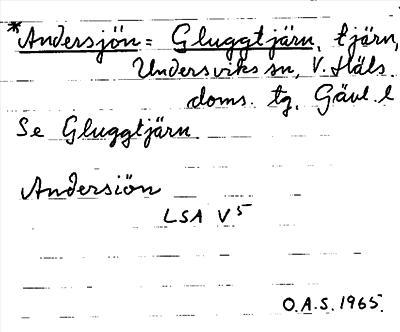 *Andersjön = Gluggtjärn, tjärn,
Undersviks sn, V. Häls.
doms. tg. Gävl. l
Se Gluggtjärn
Andersiön
LSA V5
O.A.S. 1965.